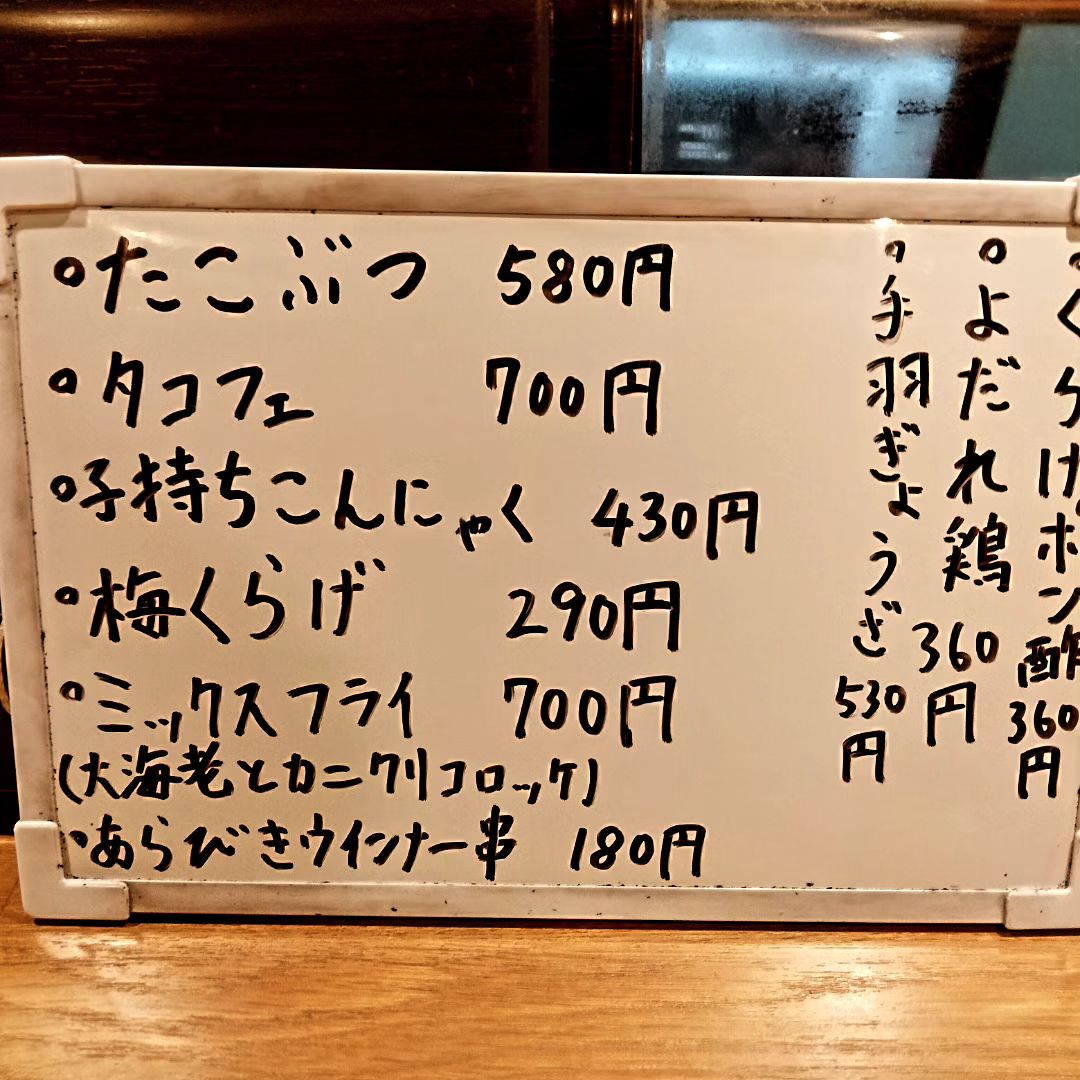 たこぶつ 580円
タコフェ 700円
子持ちこんにゃく 430円
梅くらげ 290円
ミックスフライ 700円
(大海老とカニクリコロッケ)
あらびきウインナー串 180円
くらげポン酢 360円
よだれ鶏 360円
手羽ぎょうざ 530円